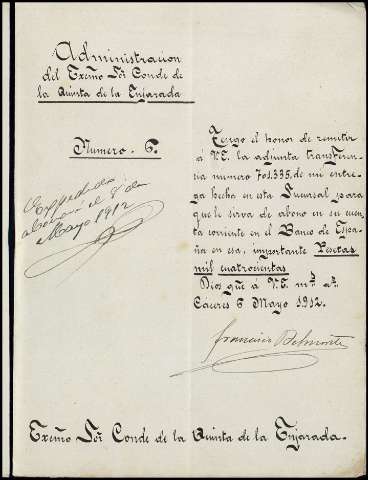 Administracion
del Exmo Sõr Conde de
la Quinta de la Enjarada
Numero. 6.
Expedida
abono el 8 de
Mayo 1912
Tengo el honor de remitir
á V.E. la adjunta transferen
cia numero 701.335, de mi entre
ga hecha en esta Sucursal para
que le sirva de abono en su cuen
ta corriente en el Banco de Espa-
ña en esa, importante Pesetas
mil cuatrocientas
Dios gũe á V.E. ms as.
Caceres 6 Mayo 1912.
Francisco Belmonte
Exmo Sõr Conde de la Quinta de la Enjarada.